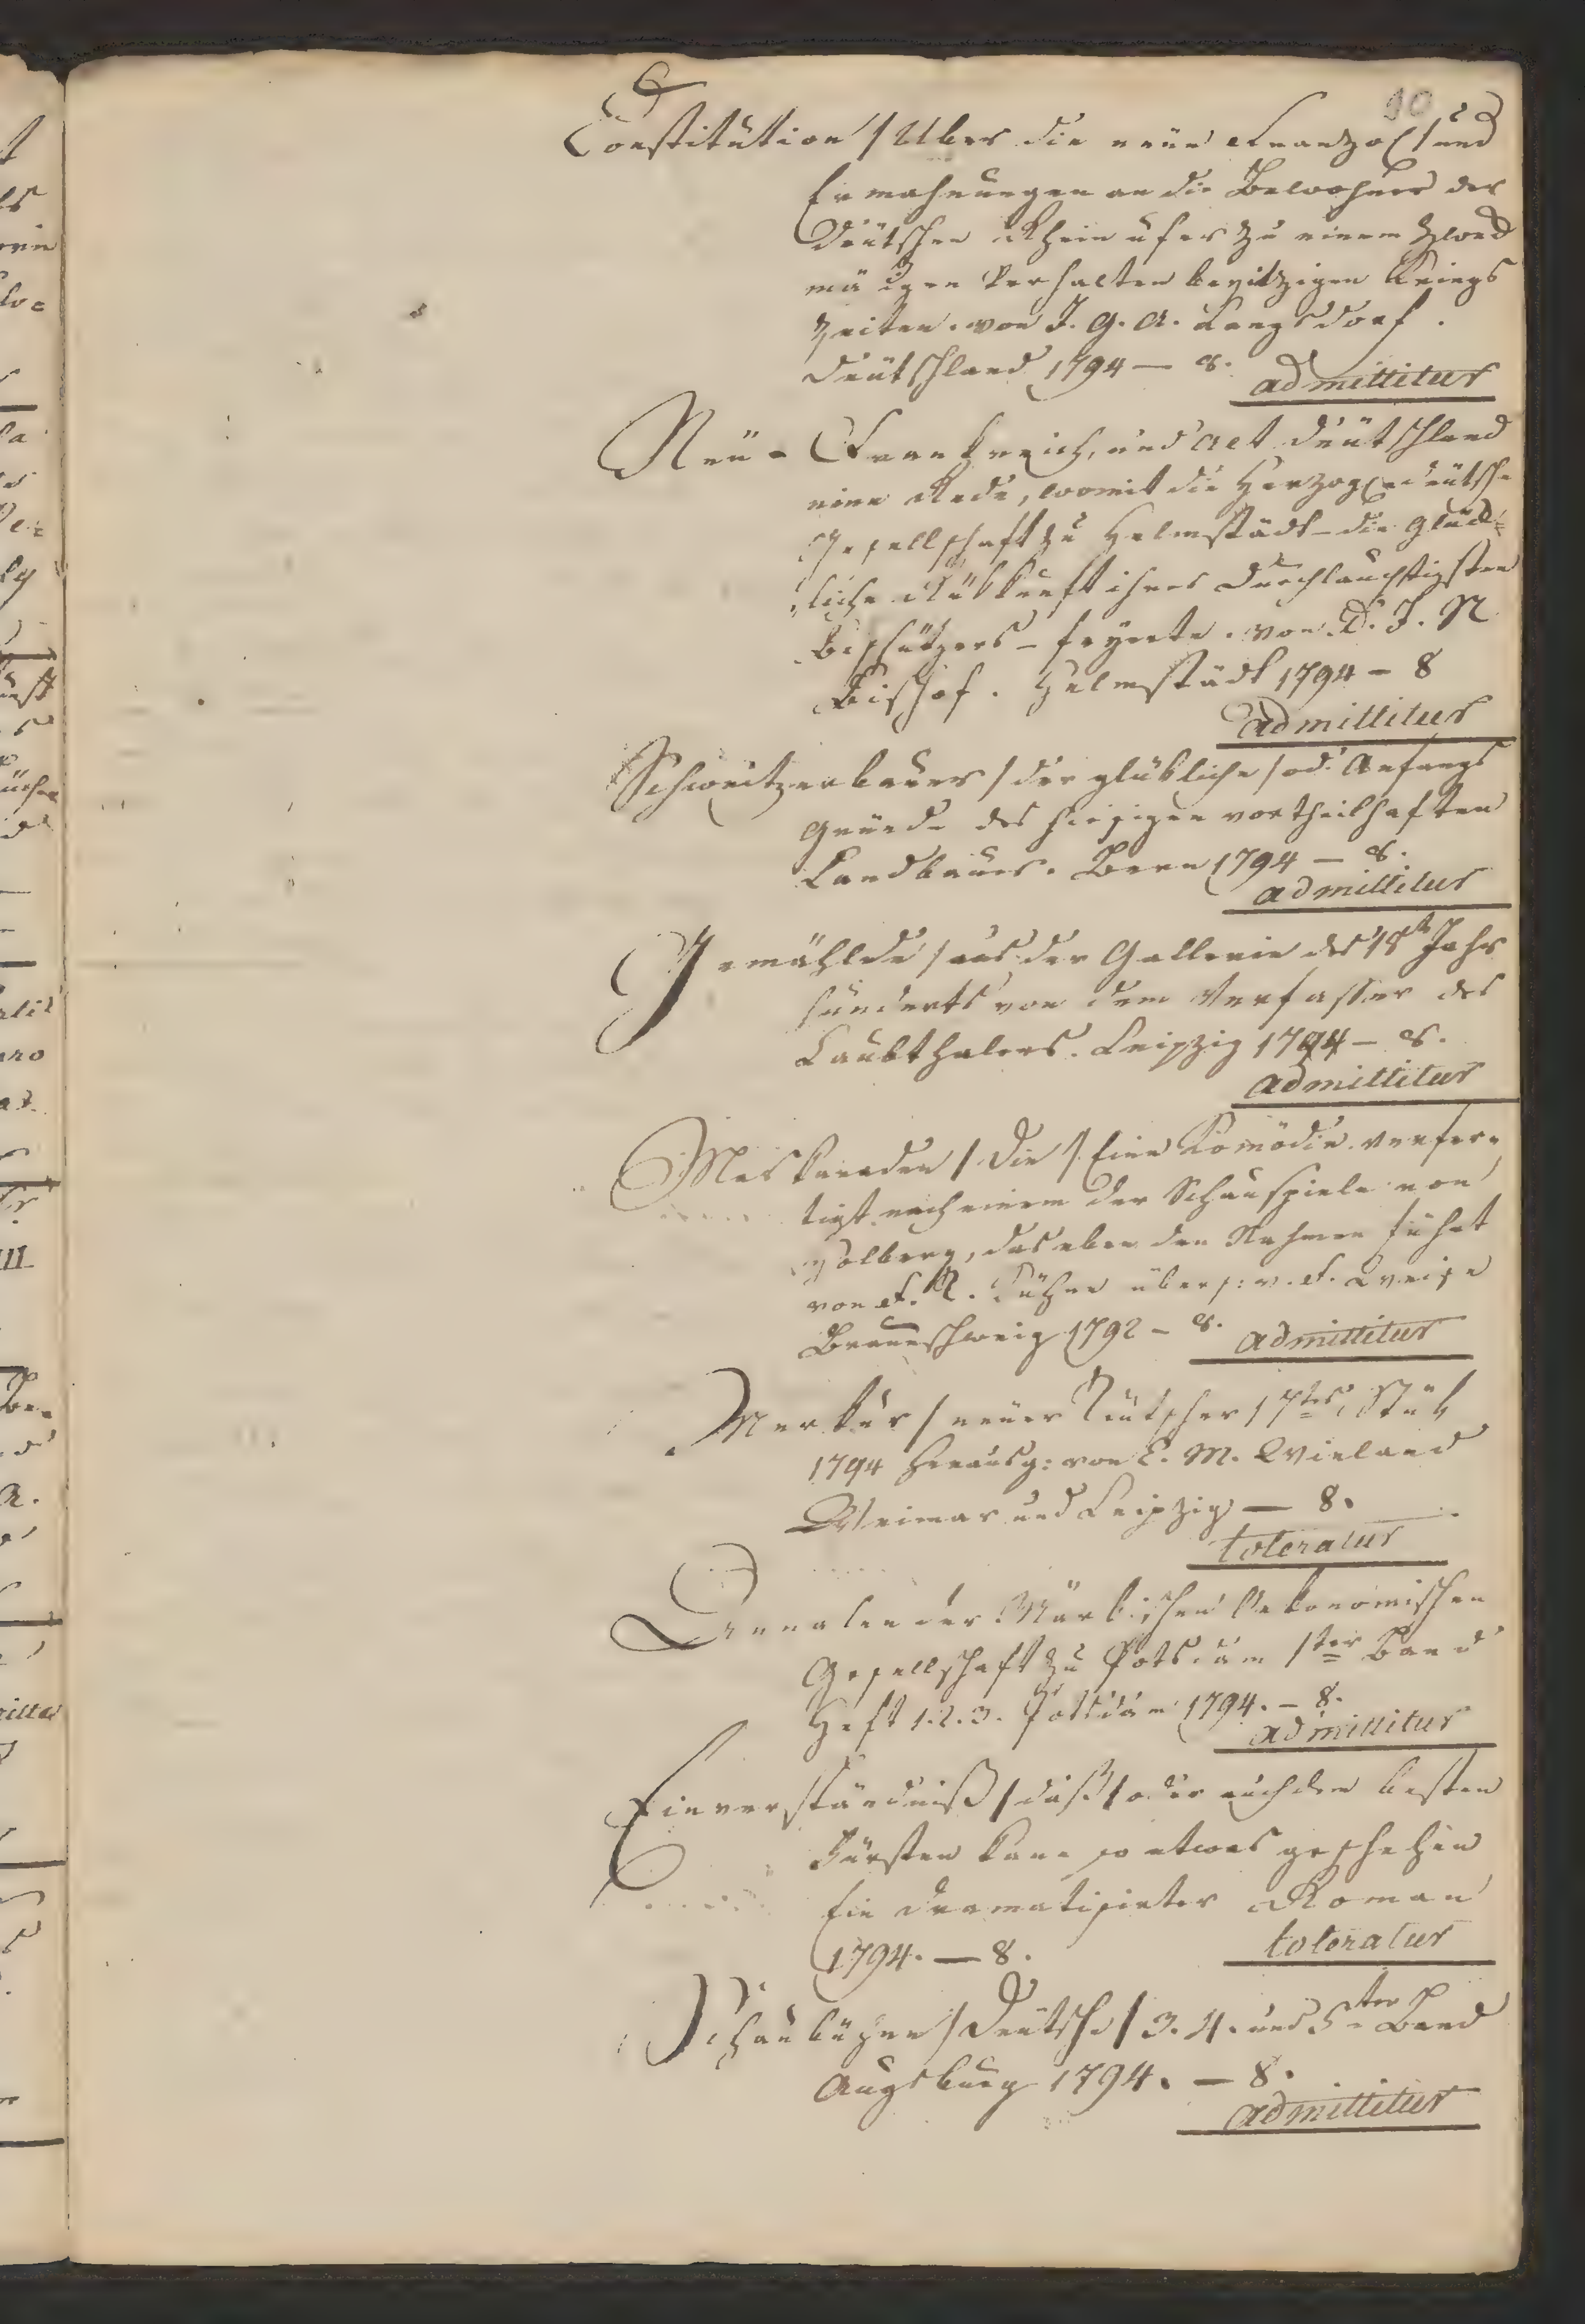 90
Constitution / Uber die neue Französ / und
Ermahnungen an die Bewohner der
deutschen Rheinufer zu einem zweck
mäßigen Verhalten bey itzigen Kriegs
zeiten. von J. G. A. Langsdorf.
Deutschland 1794 — 8. admittitur
Neu-Frankreich, und alt Deutschland
eine Rede, womit die Herzogl. deutsche
Gesellschaft zu Helmstädt – die glück-
liche Rükkunft ihres Durchlauchtigsten
Beschützers – feyerte. von D. J. N.
Bischof. Helmstädt 1794 – 8
admittitur
Schweitzerbauer / der glükliche / od. Anfangs
gründe des hiesigen vortheilhaften
Landbaues. Bern 1794 — 8.
admittitur
Gemählde / aus der Gallerie des 18t Jahr
hunderts von dem Verfasser des
Laubthalers. Leipzig 1794 – 8.
admittitur
Maskeraden / Die / Eine Komödie verfer-
tigt nach einem der Schauspiele von
Holberg, das eben den Nahmen führt
von F. übers: v. F.
Braunschweig 1792 – 8. admittitur
Merkur / neuer Teutscher / 7tes Stük
1794 herausg: von C. M. Wieland
Weimar und Leipzig — 8.
toleratur
Annalen der Märkischen Oekonomischen
Gesellschaft zu Potsdam 1ter Band
Heft 1. 2. 3. Potsdam 1794. – 8.
admittitur
Einverständniß / das / oder auch dem besten
Fürsten kann so etwas geschehen
Ein dramatisirter Roman
1794. — 8. toleratur
Schaubühne / Deutsche / 3. 4. und 5ter Band
Augsburg 1794. — 8.
admittitur